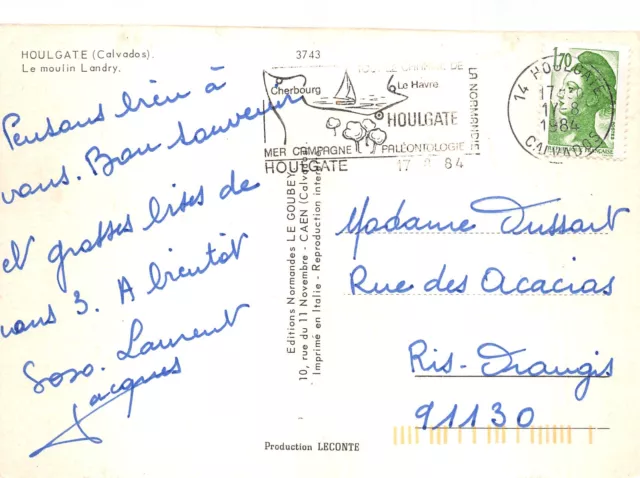 HOULGATE (Calvados).
Le moulin Landry.
3743
Pensons bien à
vous. Bon souvenir
et grosses bises de
vous 3. A bientôt
Soso. Laurent
Jacques
DE
LA NORMANDIE
Cherbourg
Le Havre
HOULGATE
MER CAMPAGNE PALÉONTOLOGIE
HOULGATE 17 8 84
14 HOULGATE
17
17-8
1984
CALVADOS
1,70
Editions Normandes LE GOUBEY
10, rue du 11 Novembre - CAEN (Calvados)
Imprimé en Italie - Reproduction interdite
Madame Dussart
Rue des Acacias
Ris-Orangis
91130
Production LECONTE